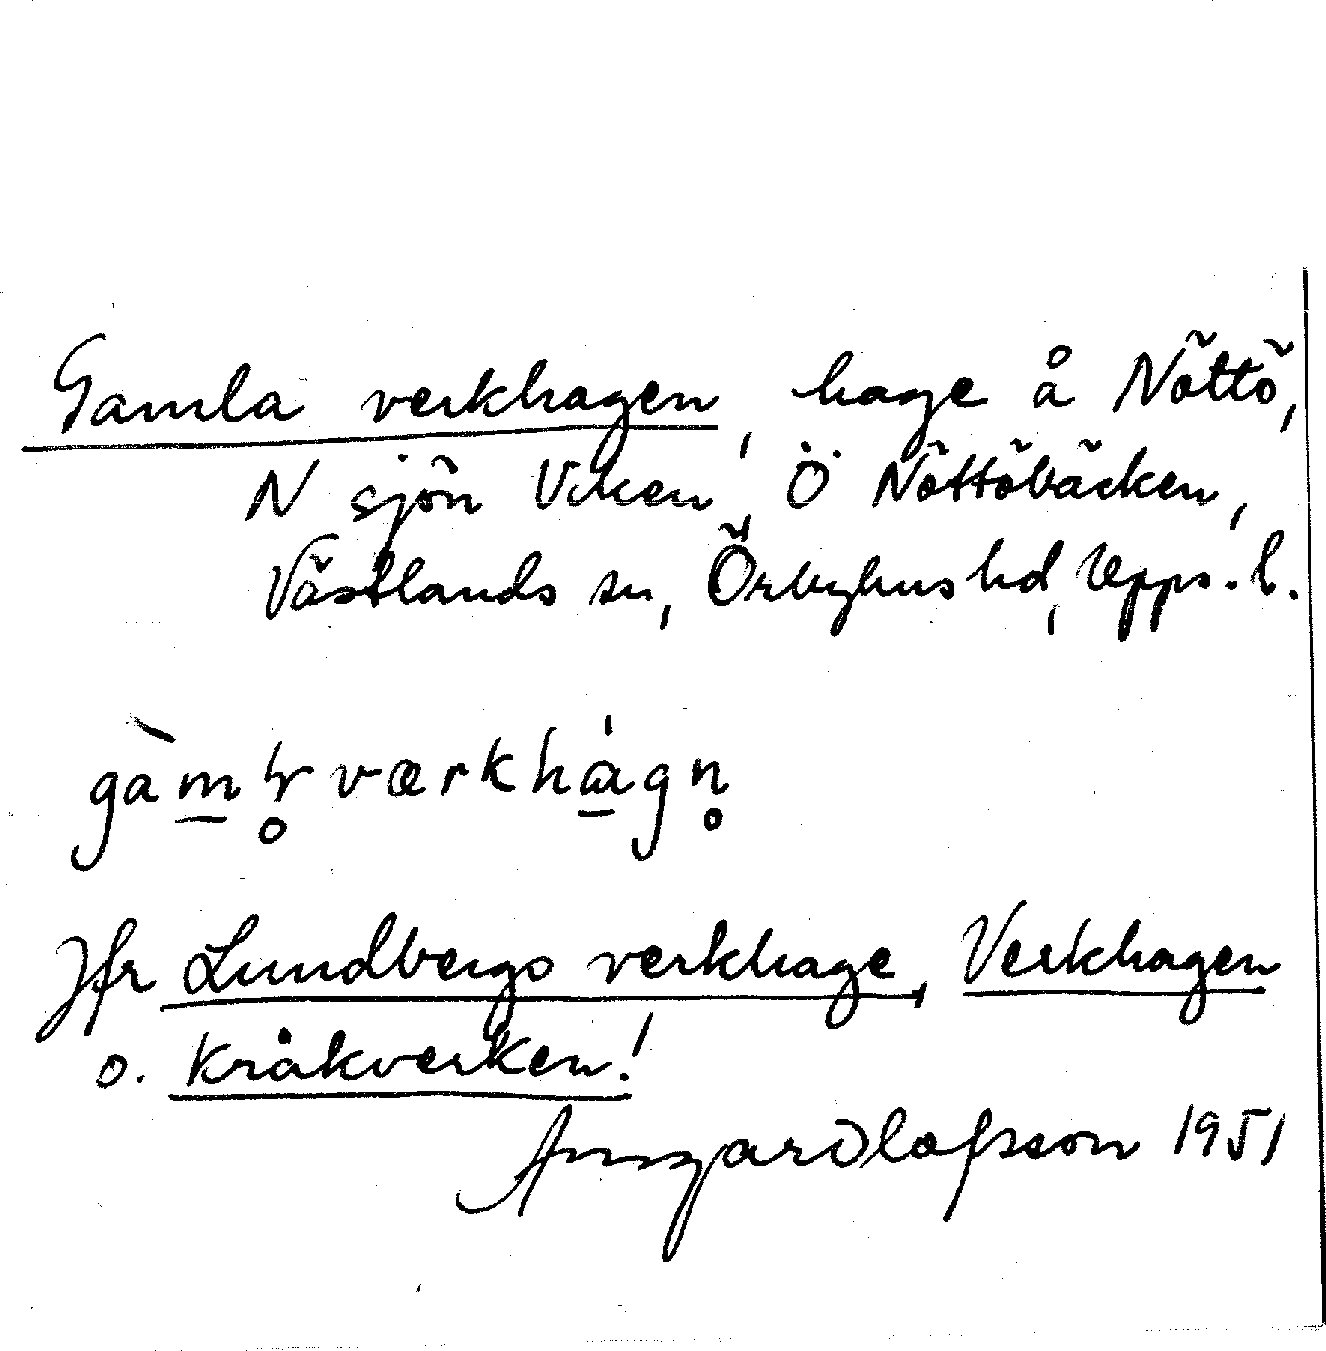 Gamla verkhagen, hage å Nöttö,
N sjön Viken, Ö Nöttöbäcken,
Västlands sn, Örbyhus hd, Upps. l.
værkhágn̥
Jfr Lundbergs verkhage, Verkhagen
o. Kråkverken!
Ansgar Olofsson 1951